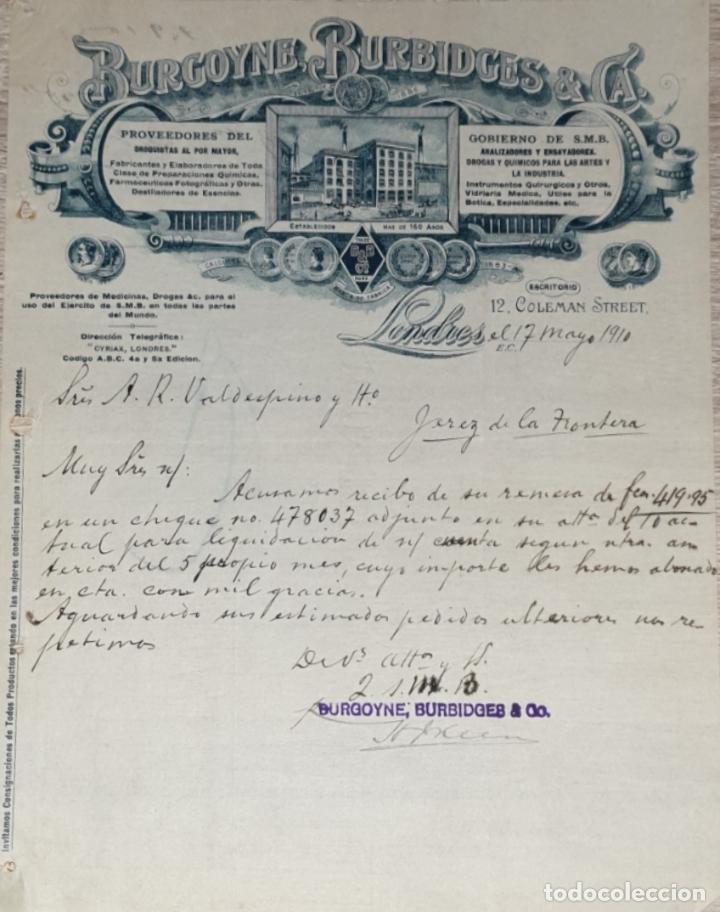 BURGOYNE, BURBIDGES & CA.
PROVEEDORES DEL
DROGUISTAS AL POR MAYOR,
Fabricantes y Elaboradores de Toda
Clase de Preparaciones Quimicas,
Farmaceuticas Fotográficas y Otras,
Destiladores de Esencias.
GOBIERNO DE S.M.B.
ANALIZADORES Y ENSAYADORES.
DROGAS Y QUIMICOS PARA LAS ARTES Y
LA INDUSTRIA.
Instrumentos Quirurgicos y Otros,
Vidriería Medica, Utiles para la
Botica, Especialidades, etc.
ESTABLECIDOS MAS DE 160 AÑOS
Proveedores de Medicinas, Drogas &c. para el
uso del Ejercito de S.M.B. en todas las partes
del Mundo.
Dirección Telegráfica:
"CYRIAX, LONDRES."
Codigo A.B.C. 4a y 5a Edicion.
ESCRITORIO
12, COLEMAN STREET,
Londres, el 17 Mayo 1910
E.C.
Srẽs A. R. Valdespino y Hº
Jerez de la Frontera
Muy Srẽs n/:
Acusamos recibo de su remesa de fcs. 419.95
en un cheque no. 478037 adjunto en su attª del 10 ac-
tual para liquidacion de n/ cuenta segun ntra. an-
terior del 5 propio mes, cuyo importe les hemos abonado
en cta. con mil gracias.
Aguardando sus estimados pedidos ulteriores nos re-
petimos
De Vs attos y SS.
2. S. M. B.
BURGOYNE, BURBIDGES & Co.
Invitamos Consignaciones de Todos Productos estando en las mejores condiciones para realizarlas
precios.
todocoleccion.net